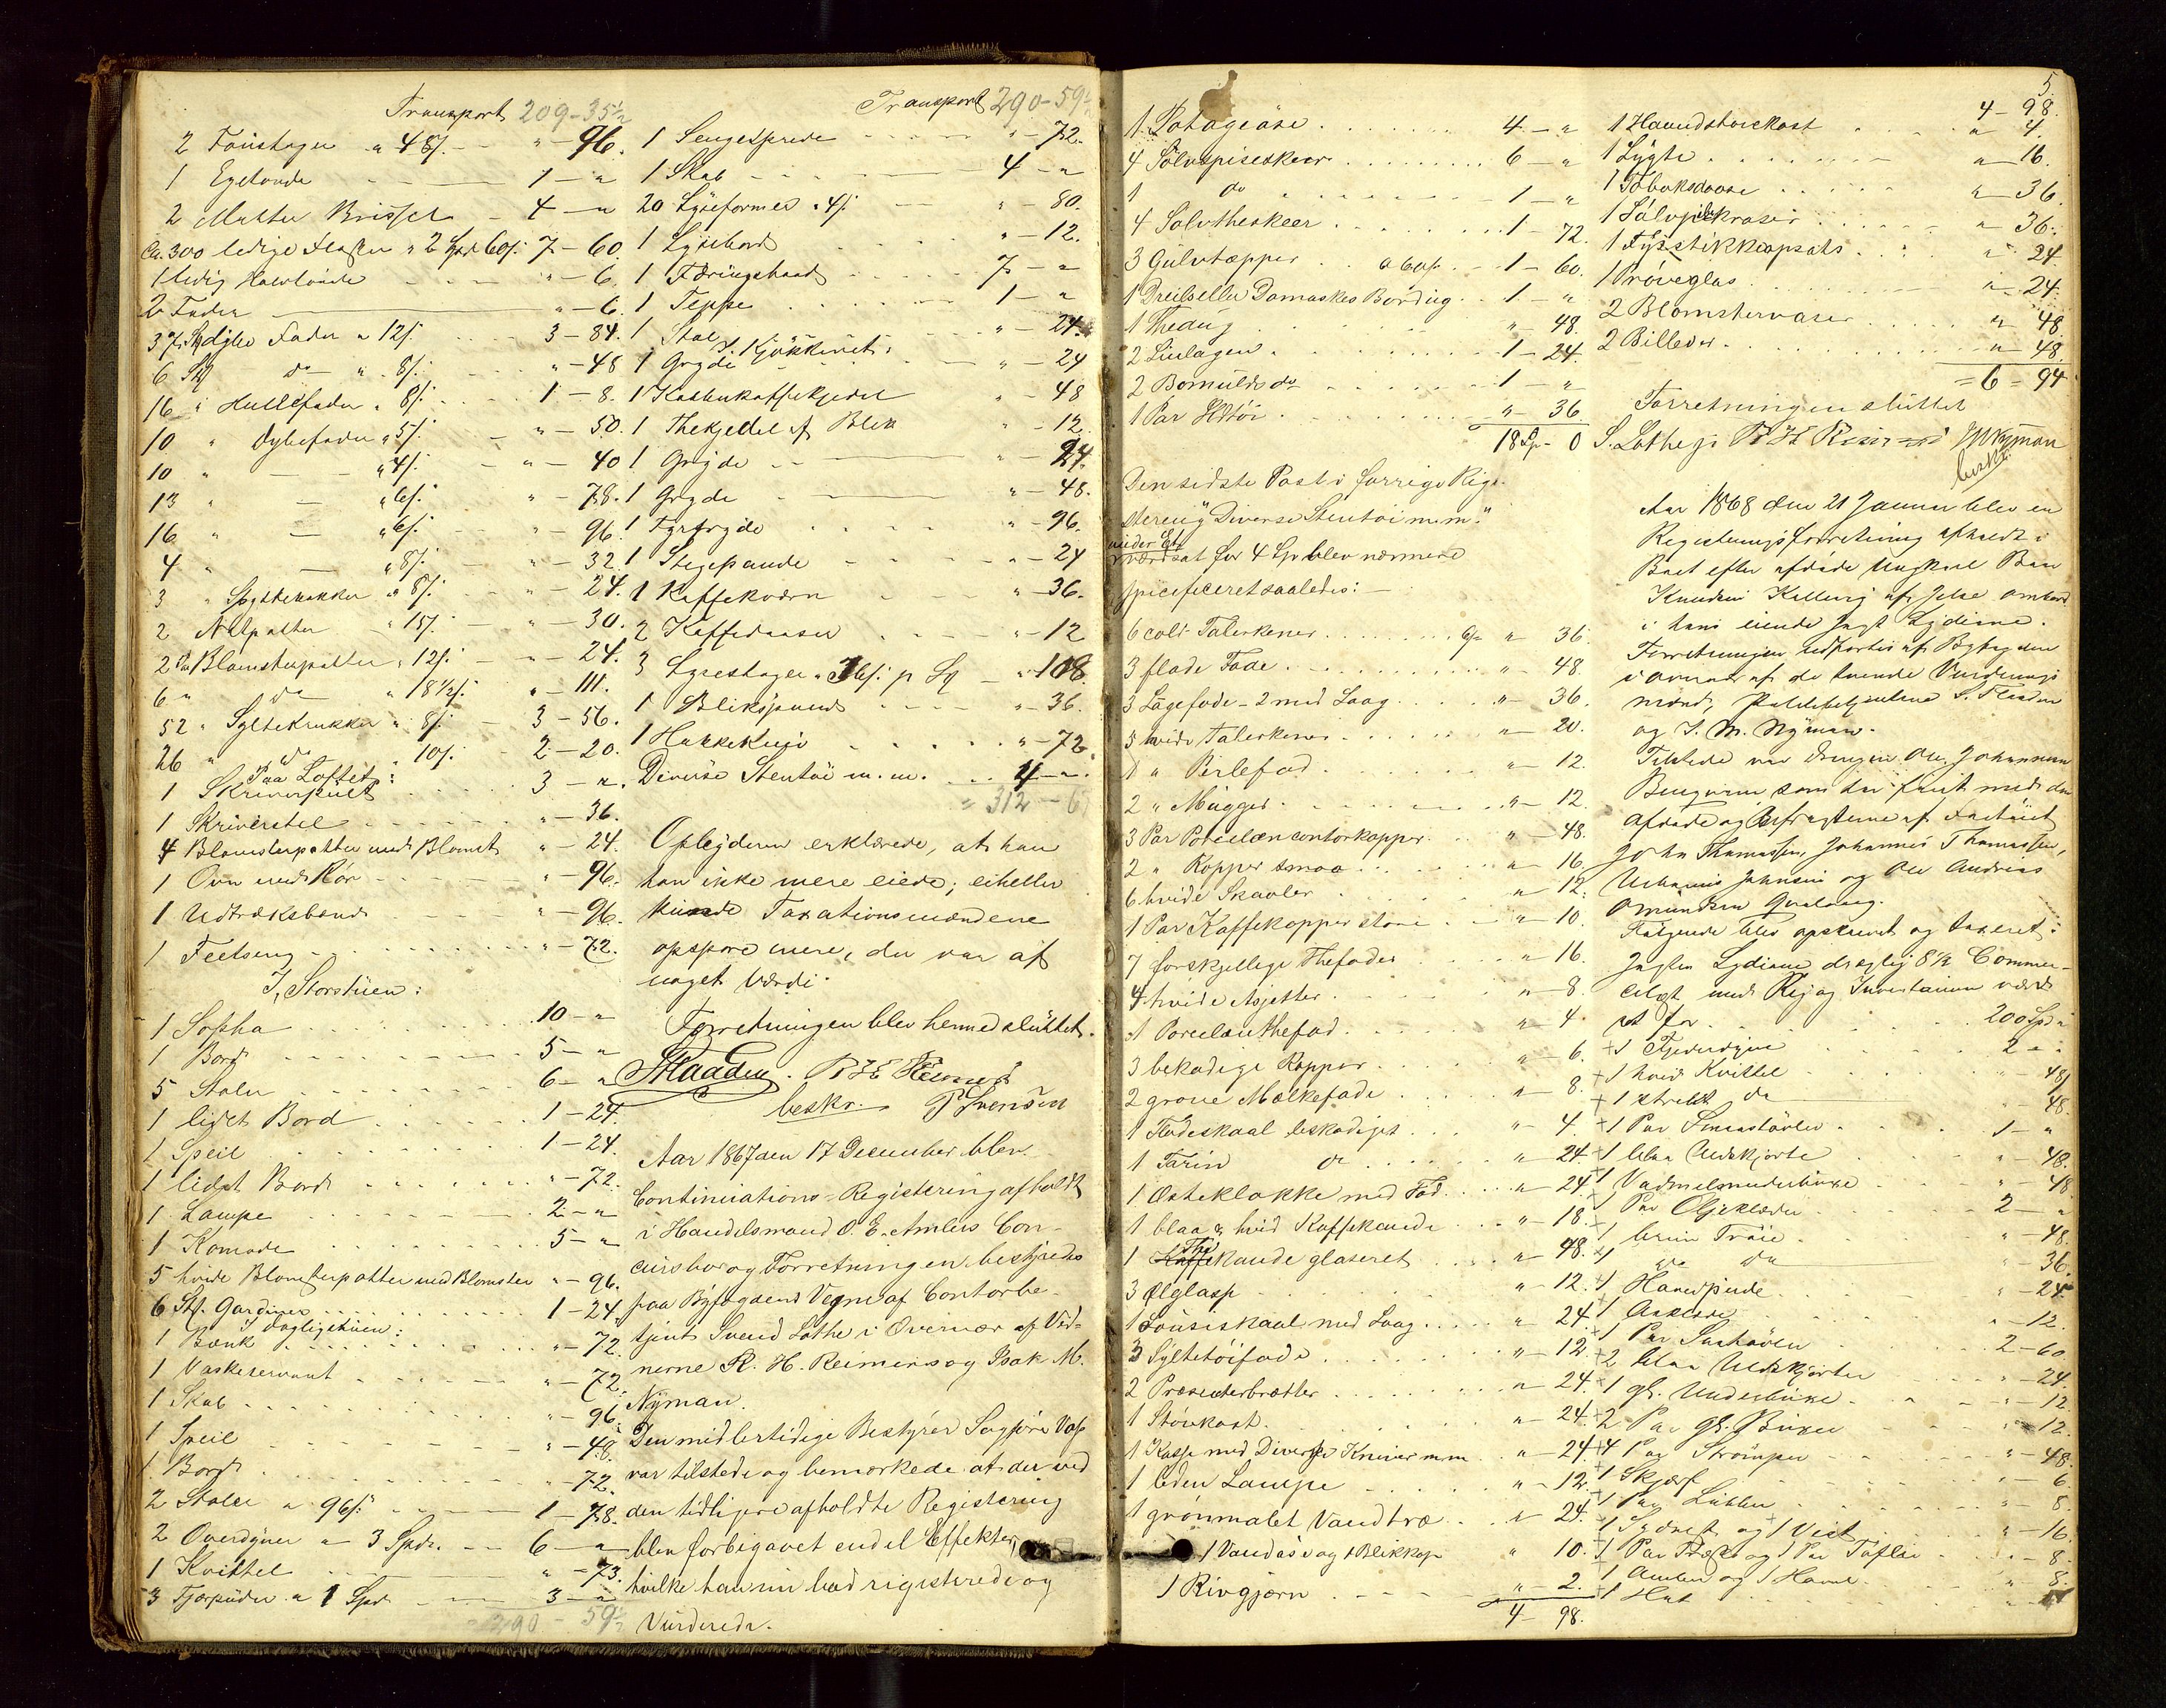 Transport 209-35½
2 Töustager a 48/. " - 96.
1 Egetønde 1 - "
2 Matter Brissel 4 - "
Ca. 300 ledige Flasker a 2 Spd 60/. 7 - 60.
1 ledig Halvtønde " - 6.
2 Fader " - 6.
37 Stk dybe Fader a 12/. 3 - 84.
6 Stk do " 8/. " - 48
16 " Hullefader " 8/. 1 - 8.
10 " Dybefader " 5/. " - 50.
10 " — " 4/. " - 40
13 " — " 6/. " - 78.
16 " — " 6/. " - 96.
4 " — " 8/. " - 32.
3 " Syltekrukker " 8/. " - 24.
2 Natpotter " 15/. " - 30.
2 Par Blomsterpotter " 12/. " - 24.
6 " do " 18½/. " - 111.
52 " Syltekrukker " 8/. 3 - 56.
26 " do " 10/. 2 - 20.
Paa Loftet:
1 Skriverpult 3 - "
1 Skriverstol " - 36.
4 Blomsterpotter med Blomst " - 24.
1 Ovn med Rör " - 96.
1 Udtræksbord " - 96.
1 Feltseng " - 72.
I, Storstuen:
1 Sopha 10 - "
1 Bord 5 - "
5 Stoler 6 - "
1 lidet Bord 1 - 24.
1 Speil 1 - 24.
1 lidet Bord " - 72.
1 Lampe 2 - "
1 Komode 5 - "
5 hvide Blomsterpotter med Blomster " - 96.
6 Stk. Gardiner 1 - 24
I dagligstuen:
1 Bænk " - 72.
1 Vaskeservant " - 72.
1 Skab " - 96.
1 Speil " - 48.
1 Bord " - 72.
2 Stoler a 96/. 1 - 78.
2 Overdyner a 3 Spdr. 6 - "
1 Kvittel " - 73.
3 Fjærpuder a 1 Spd 3 - "
290 - 59½
Transport 290-59½
1 Sengesprede " - 72.
1 Skab 4 - "
20 Lyseformer a 4/. " - 80.
1 Lysebord " - 12.
1 Færingsbaad 7 - "
1 Teppe 1 - "
1 Stol " - 24.
I, Kjökkenet:
1 Gryde " - 24
1 Kobberkaffekjedel " - 48
1 Thekjedel af Blik " - 12
1 Gryde " - 24.
1 Gryde " - 48.
1 Fyrgryde " - 96.
1 Stegepande " - 24
1 Kaffekværn " - 36.
2 Kaffedaaser " - 12
3 Lysestager a 36/. p Stk " - 108.
1 Blikspand " - 36.
1 Hakkekniv " - 72
Diverse Stentöi m. m. 4 - "
" 312 - 6
Opbyderen erklærede, at han
han ikke mere eiede; eiheller
kunde Taxationsmændene
opspore mere, der var af
noget Værdi.
Forretningen blev hermed sluttet.
S Flaaden. R H Reimers
beskr. P Svensen
Aar 1867 den 17 December blev
Continuations-Registering afholdt
i Handelsmand O. E. Amlies Con-
cursbo og Forretningen bestyredes
paa Byfogdens Vegne af Contorbe-
tjent Svend Lothe i Overvær af Vid-
nerne R. H. Reimers og Isak M.
Nyman.
Den midlertidige Bestyrer Sagfører Vaf
var tilstede og bemærkede at der ved
den tidligere afholdte Registering
blev forbigaaet endel Effekter,
hvilke han nu lod registrere og
Vurdere.
5.
1 Potageöse 4 - "
4 Sölvspiseskeer 6 - "
1 do 1 - "
4 Solvtheskeer 1 - 72.
3 Gulvtæpper a 60/. 1 - 60.
1 Dreils eller Damaskes Bordug 1 - "
1 Thedug " - 48.
2 Linlagen 1 - 24.
2 Bomulds do 1 - "
1 Par Ildtöi " - 36
18 Sp - 0
Den sidste Post i forrige Regi-
stering "Diverse Stentöi m. m."
under Et
værdsat for 4 Sp blev nærmere
specificeret saaledes:
6 colt Talerkener 6/. " 36.
3 flade Fade " - 48.
3 Lagefade - 2 med Laag " - 36.
5 hvide Talerkener " - 20.
1 " Perlefad " - 12.
2 " Mugger " - 12.
3 Par Porcelæn contorkopper " - 48.
2 " Kopper smaa " - 16.
6 hvide Skaaler " - 12.
1 Par Kaffekopper store " - 10.
7 forskjellige Thefader " - 16.
4 hvide Asjetter " - 8.
1 Porcelænthefad " - 4
3 bekadige Kopper " - 6.
2 grove Mælkefade " - 8.
1 Flödeskaal beskadiget " - 4.
1 Tarin do " - 24
1 Osteklokke med Fad " - 24
1 blaa & hvid Kaffekande " - 18.
1 Thekande glaseret " - 48.
3 Ölglass " - 12.
1 Sousiskaal med Laag " 24
3 Syltetöifade " - 12.
2 Præsenterbrætter " - 24.
1 Stövkost " - 24.
1 Kasse med Diverse Kniver m m " - 24
1 liden Lampe " - 12
1 grönmalet Vandtræ " - 24.
1 Vandöse og 1 Blikkop " 10.
1 Rivejern " - 2.
4 - 98.
4 - 98.
1 Haandstövekost " 4.
1 Lygte " - 16.
1 Tobaksdaase " - 36.
1 Sölvpibekradser " - 36.
1 Fyrstikkeopsats " - 24
1 Pröveglas " - 24.
2 Blomstervaser " - 48
2 Billeder " - 48.
= 6 - 94
Forretningen sluttet
S. Lothe p R H Reimers I M Nyman
beskr.
Aar 1868 den 21 Januar blev en
Registeringsforretning afholdt i
Boet efter afdöde Ungkarl Baar
Knudsen Kallevig af Jelse ombord
i hans eiende Jagt Lydiana.
Forretningen udfortes af Byfogden
i Overvær af de tvende Vurderings
mænd, Politibetjentene S. Flaaden
og I. M. Nyman.
Tilstede var Drengen Ole Johannesen
som har faret med den
afdøde og Befragterne af Fartöiet
John Thomassen, Johannes Thomassen,
Johnsen og Ole Andreas
Omundsen Qvaloeg.
Fölgende blev opskrevet og taxeret:
Jagten Lydiana drægtig 8½ Commer-
celæst med Rig og Inventarium værd-
sat for 200 Spd "
+ 1 Fjederdyne 2 - "
+ 1 hvid Kvittel " 48
+ 1 stribet do " 48.
+ 1 Par Smurstövler 1 - "
+ 1 blaa Uldskjorte " - 48.
+ 1 Vadmelsunderbuxe " - 48
+ 1 Par Oljeklæder 2 - "
+ 1 brun Tröie " - 48.
+ 1 do do " - 36.
+ 1 Hovedpude " - 24
+ 1 " - 12.
+ 1 Par Søstövler 2 - 60
+ 2 blaa Uldskjorter " - 24.
+ 1 gl. Underbuxe " - 12
+ 2 Par gl. Buxer " 12.
+ 4 Par Strömper " - 48
+ 1 Skjærf " - 6.
+ 1 Par Lubber " - 8.
+ 1 Sydvest og 1 Vest " - 16
+ 1 Par Træsko og 1 Par Töfler " - 8.
+ 1 og 1 " 8.
+ 1 Hat